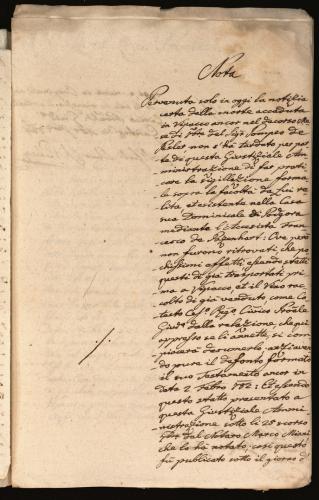 Nota
Pervenuta solo in oggi la notizia
certa della morte accaduta
in Vipacco ancor nel decorso Me
se di del Sigr Pompeo de
non s'ha tardato per par
te di questa Giustiziale Am
ministrazione di far prati
care la Sigillazione forma
le sopra la facoltà da lui re
lita, ed esistente nella Casa
sua Dominicale di
mediante l'Attuario Fran
cesco de : Ove però
non furono ritrovati, che po
chissimi effetti, essendo stati
questi di già trasportati pri
ma a Vipacco, et il Vino rac
colto di già venduto come
Regio Civico Prov.le
Giud.o dalla relazione, che qui
appresso se li annette, si com
piacerà avendo
pure il defonto formato
il suo Testamento ancor in
data 2 Febro 782: Et essendo
questo stato presentato a
questa Giustiziale Ammi
nistrazione sotto li 28 scorso
dal Notaro Marco
che lo ha rogato, così questo
fù publicato sotto il giorno d